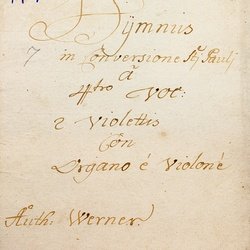 Hÿmnus
7 in Conversione Sti Paulj
â
4tro Voc:
2 Violettis
Con
Organo è Violone
Auth: Werner.